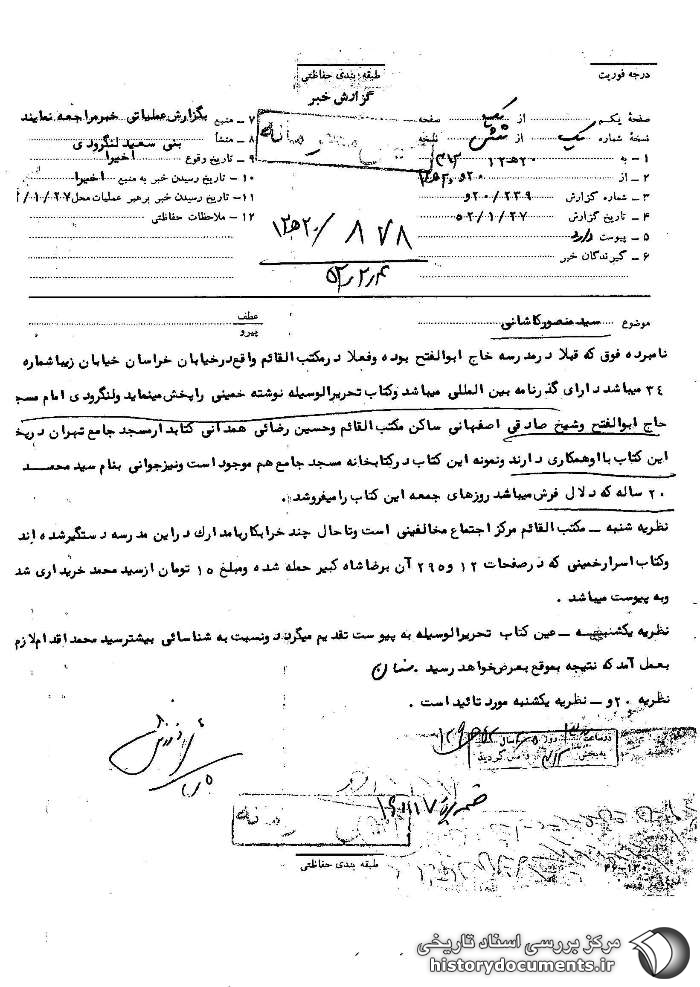 درجه فوریت
طبقه بندی حفاظتی
گزارش خبر
صفحهٔ یکم از یک صفحه
نسخهٔ شماره یک از شش نسخه
۱ – به ۱۲ﻫ۲۰ ۳۱۲
۲ – از ۲۰و
۳ – شماره گزارش ۲۰/۲۳۹و
۴ – تاریخ گزارش ۵۲/۱/۲۷
۵ – پیوست دارد
۶ – گیرندگان خبر
۷ – منبع بگزارش عملیاتی خبر مراجعه نمایند
۸ – منشأ بنی سعید لنگرودی
۹ – تاریخ وقوع اخیرا
۱۰ – تاریخ رسیدن خبر به منبع اخیرا
۱۱ – تاریخ رسیدن خبر برهبر عملیات محل ۲۷/۱/
۱۲ – ملاحظات حفاظتی
۸۷۸/۱۲ﻫ۲۰
۵۲/۲/۴
موضوع سید منصور کاشانی
عطف
پیرو
نامبرده فوق که قبلا درمدرسه حاج ابوالفتح بوده وفعلا درمکتب القائم واقع درخیابان خراسان خیابان زیبا شماره
۳۴ میباشد دارای گذرنامه بین المللی میباشد وکتاب تحریرالوسیله نوشته خمینی راپخش مینماید ولنگرودی امام مسجد
حاج ابوالفتح وشیخ صادقی اصفهانی ساکن مکتب القائم وحسین رضائی همدانی کتابدارمسجد جامع تهران درپخش
این کتاب بااوهمکاری دارند ونمونه این کتاب درکتابخانه مسجد جامع هم موجود است ونیزجوانی بنام سید محمد
۲۰ ساله که دلال فرش میباشد روزهای جمعه این کتاب رامیفروشد .
نظریه شنبه – مکتب القائم مرکز اجتماع مخالفینی است وتاحال چند خرابکاربامدارک دراین مدرسه دستگیرشده اند
وکتاب اسرارخمینی که درصفحات ۱۲ و۲۹۵ آن برضاشاه کبیر حمله شده ومبلغ ۱۵ تومان ازسید محمد خریداری شده
وبه پیوست میباشد .
نظریه یکشنبه – عین کتاب تحریرالوسیله به پیوست تقدیم میگردد ونسبت به شناسائی بیشترسید محمد اقدام لازم
بعمل آمد که نتیجه بموقع بعرض خواهد رسید .
نظریه ۲۰و – نظریه یکشنبه مورد تائید است .
در ساعت روز سال
به بخش واصل گردید
طبقه بندی حفاظتی
مرکز بررسی اسناد تاریخی
historydocuments.ir